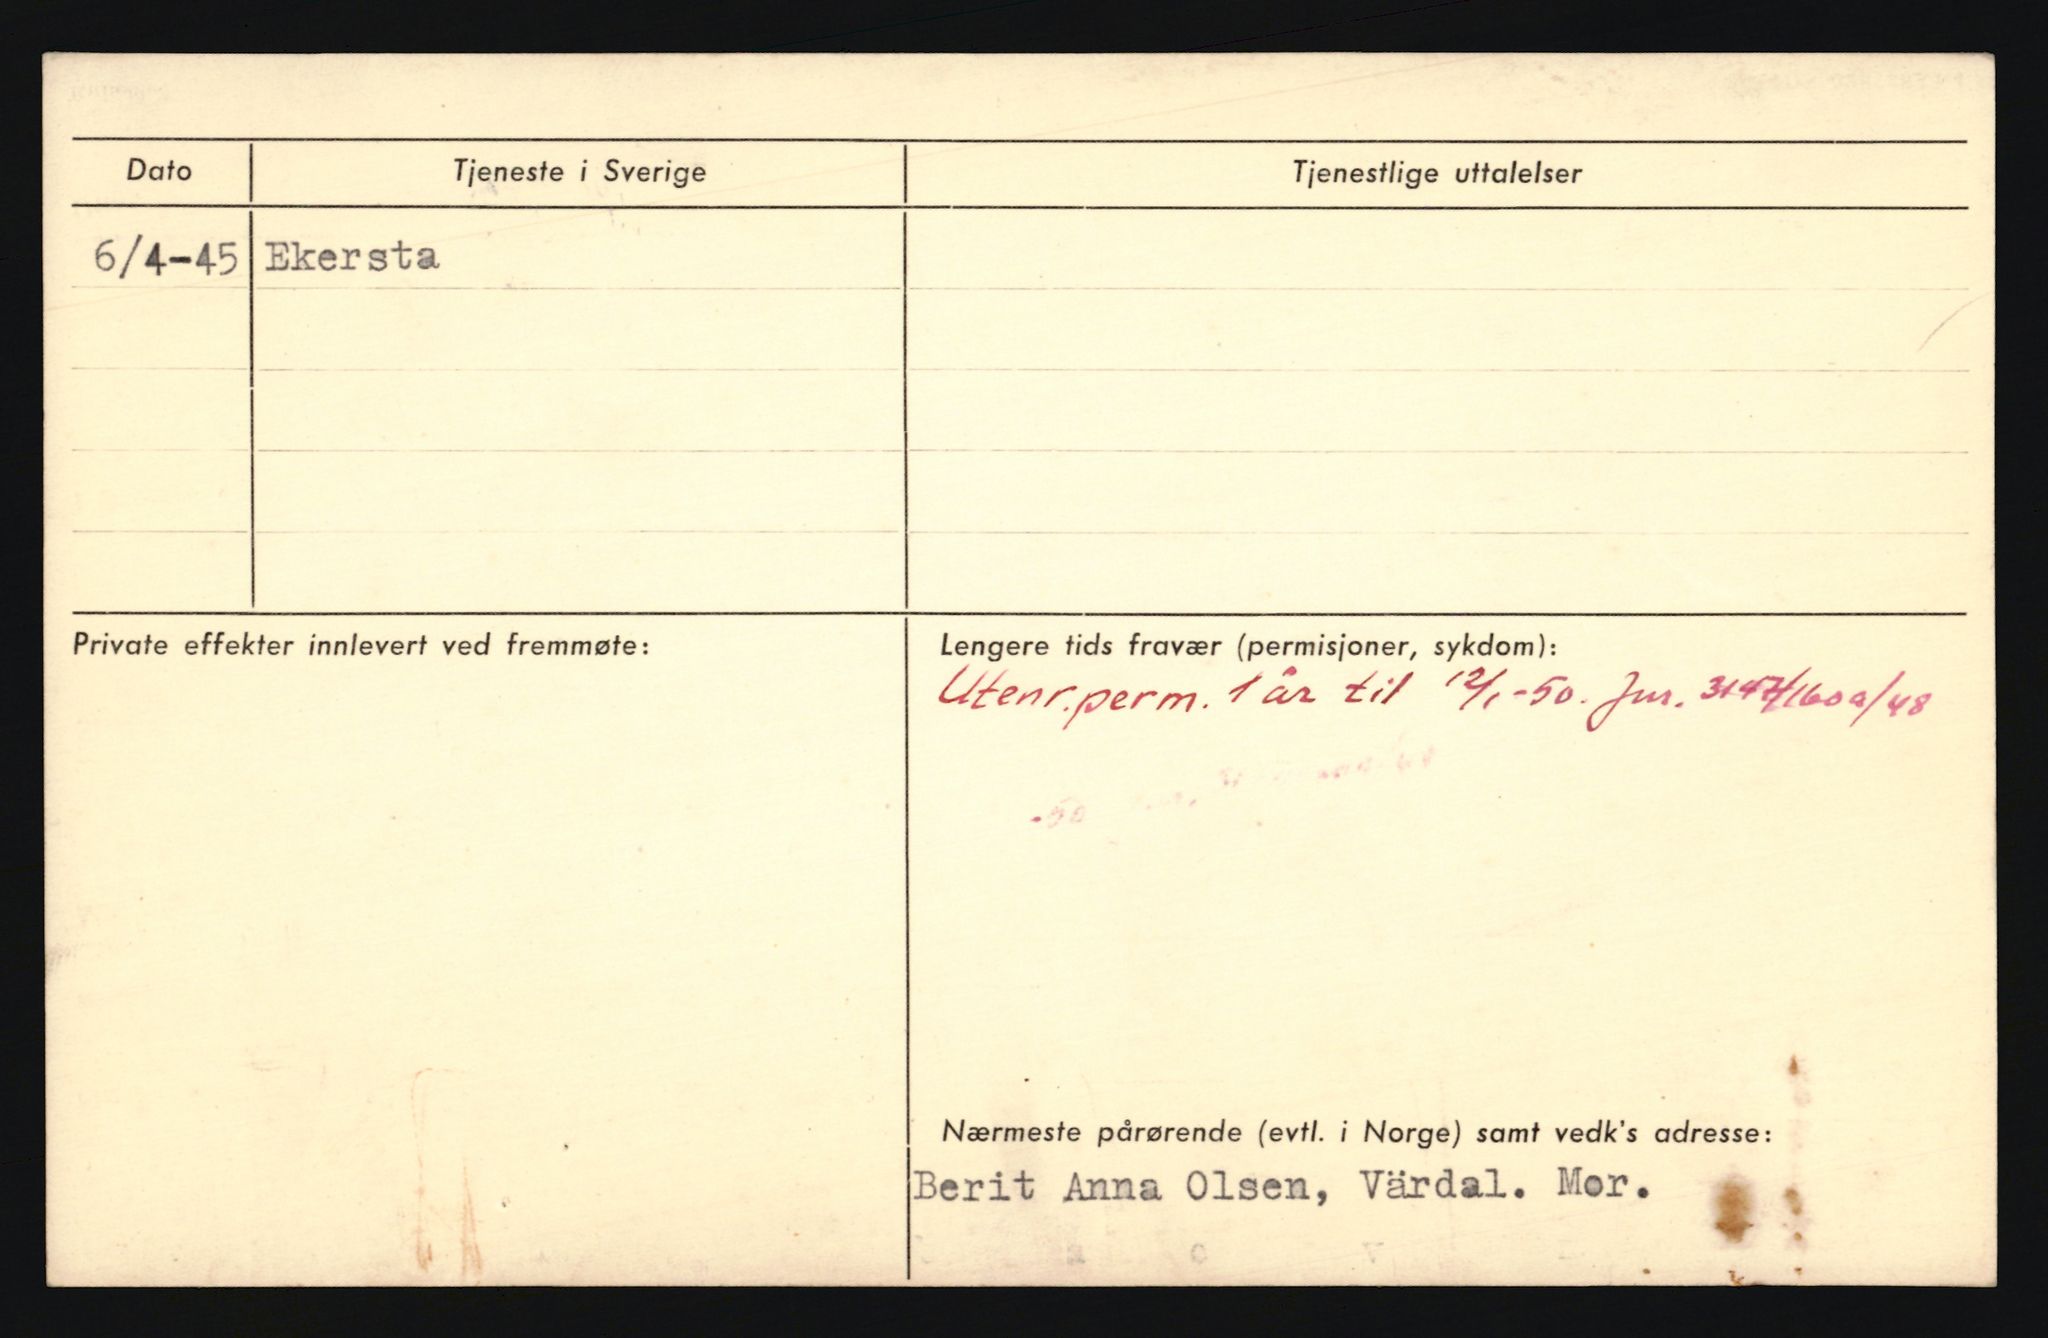 Dato Tjeneste i Sverige Tjenestlige uttalelser
6/4-45 Ekersta
Private effekter innlevert ved fremmøte:
Lengere tids fravær (permisjoner, sykdom):
Utenr.perm. 1 år til 12/1-50. Jnr. 3147/160a/48
Nærmeste pårørende (evtl. i Norge) samt vedk's adresse:
Berit Anna Olsen, Värdal. Mor.